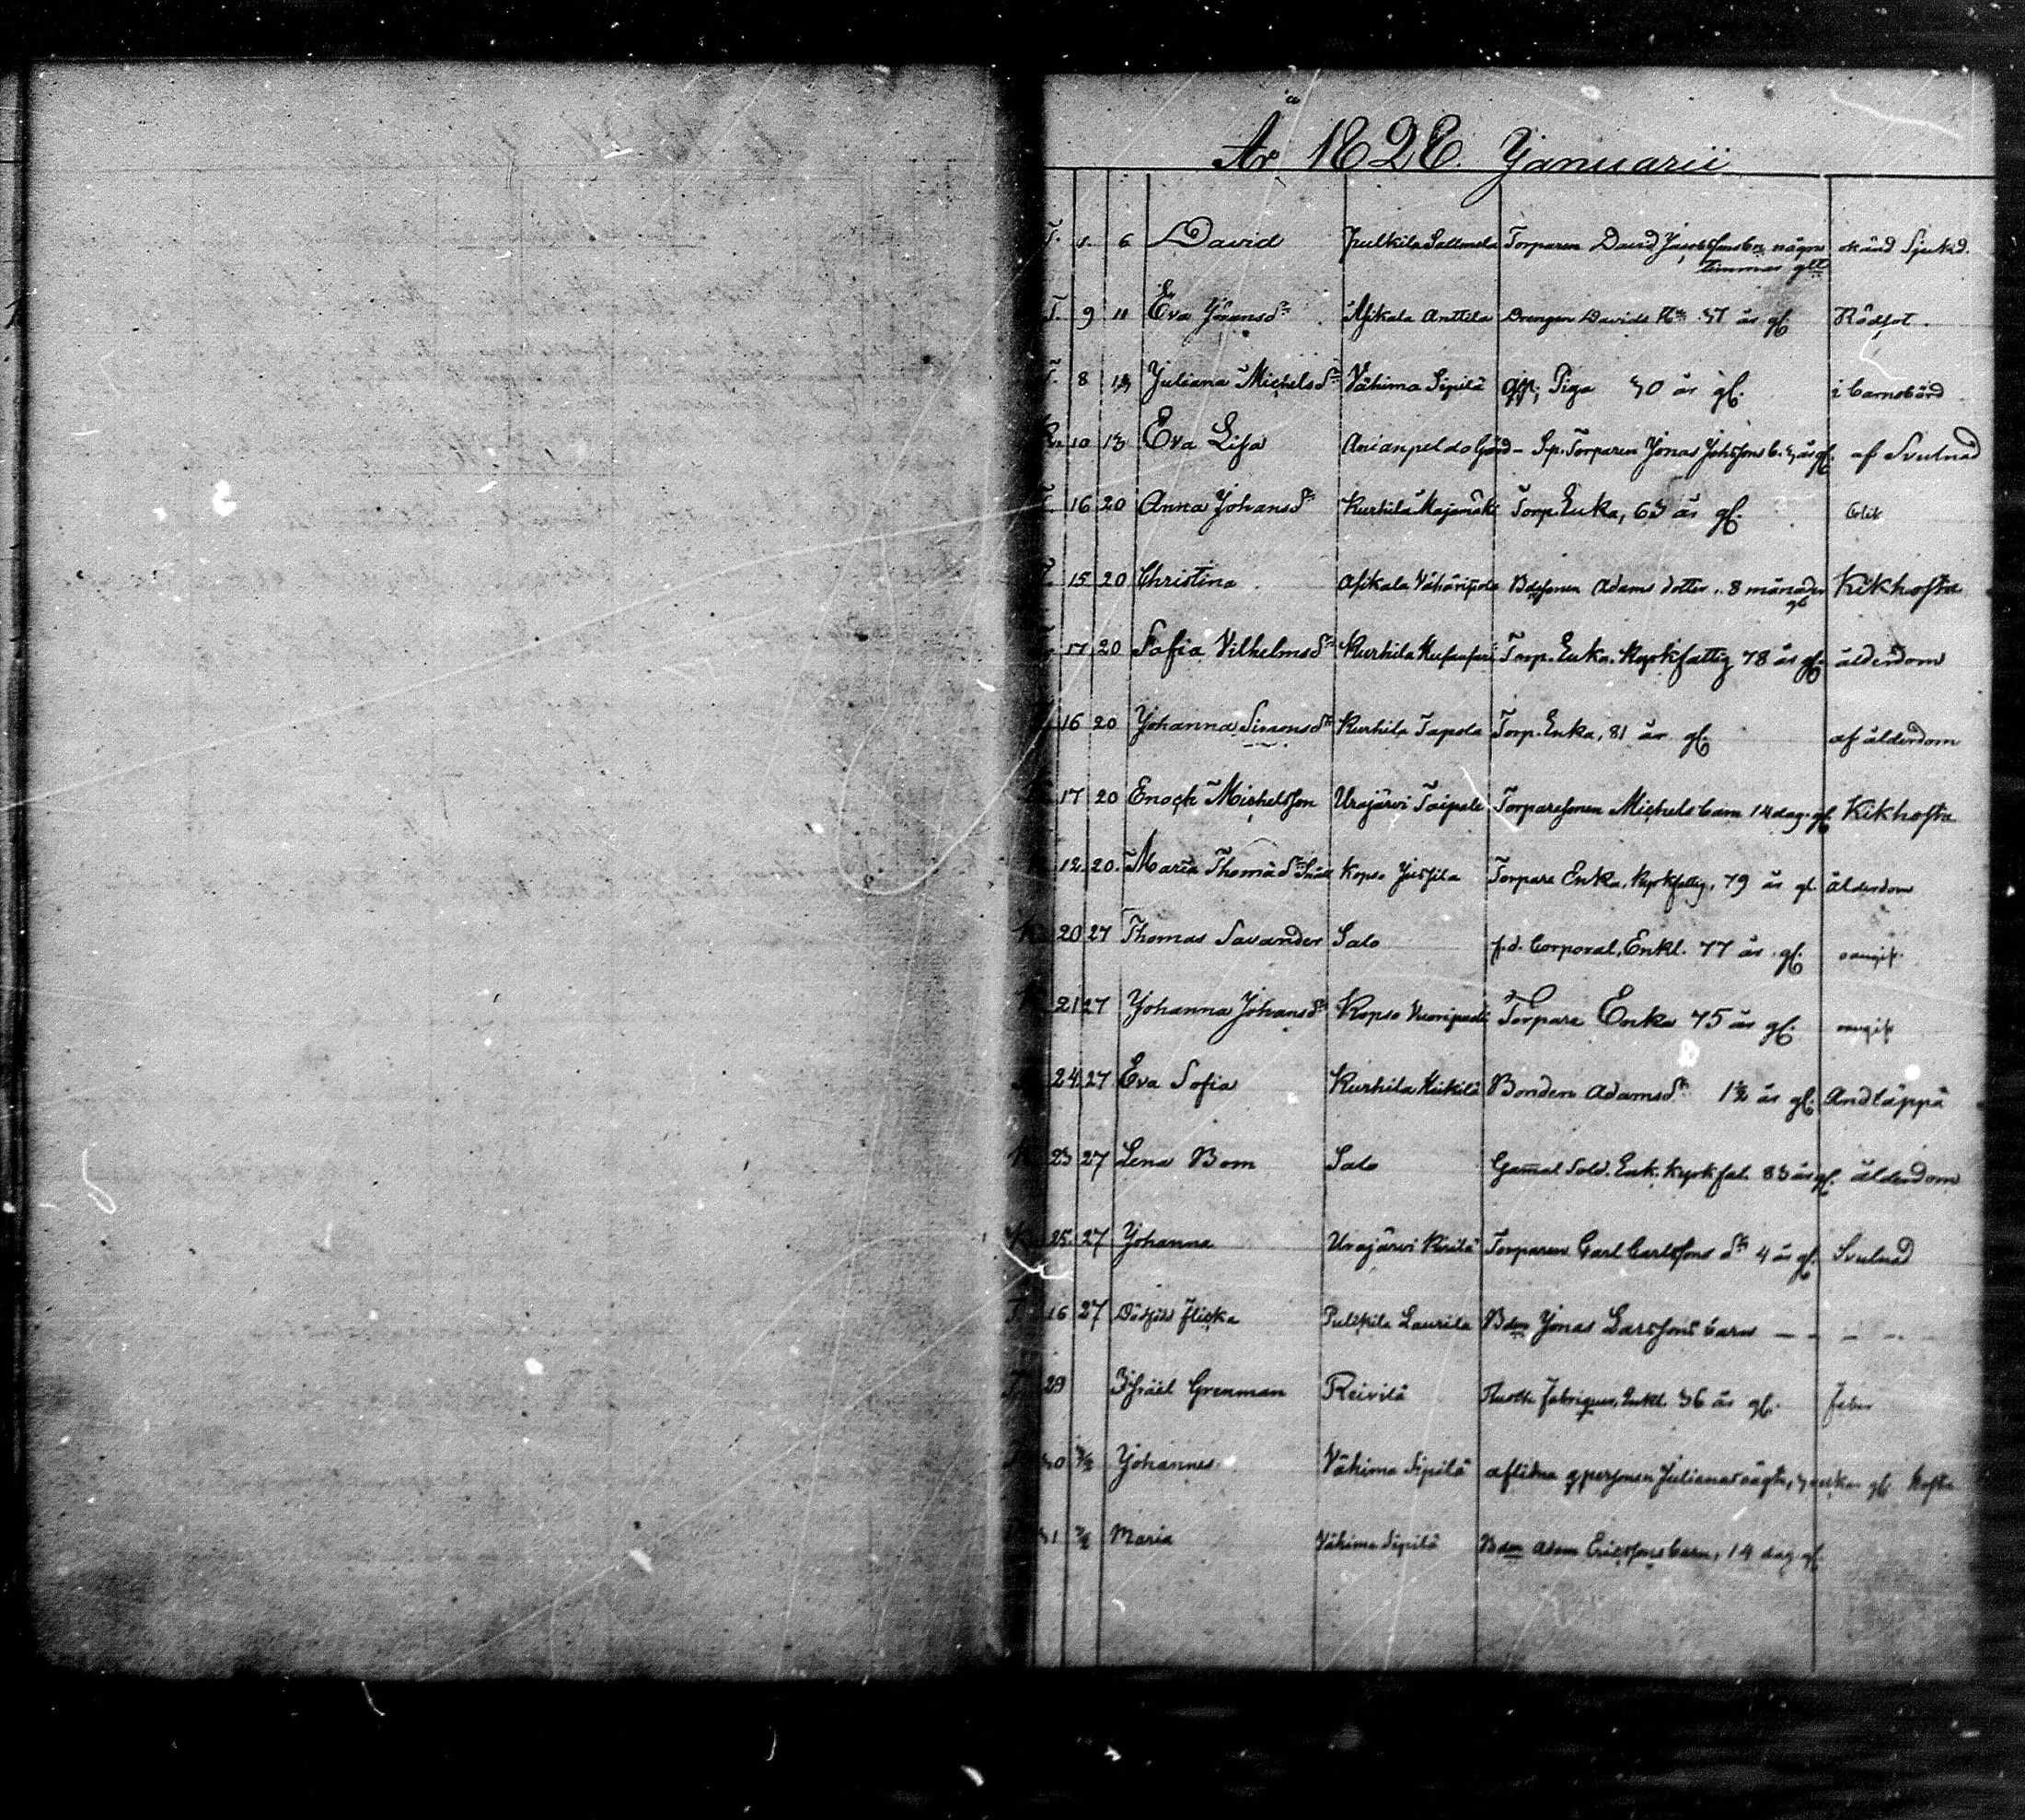 År 1828. Januarii
T. 1. 6 David Pulkila Sallmela Torparen David Jacobssons b: några okänd Sjukd.
timmar glt
T. 9 11 Eva Jöransdr Asikala Anttila Drengen Davids H: 37 år gl. Rödsot.
T. 8 13 Juliana Michelsdr Vähimа Sipilä Piga 30 år gl. i barnsbörd
K. 10 13 Eva Lisa Gård - Torparen Jonas Johssons b. 3 år gl. af Svulnad
16 20 Anna Johansdr Kurhila Torp. Enka, 63 år gl.
15 20 Christina Asikala Bdesonen Adams dotter .. 8 månader Kikhosta
gl
17 20 Sofia Vilhelmsdr Kurhila Torp. Enka. Kyrkfattig 78 år gl. ålderdom
16 20 Johanna Simonsdr Kurhila Tapola Torp. Enka, 81 år gl. af ålderdom
17 20 Enoch Michelsson Urajärvi Taipale Torparesonen Michels barn 14 dag. gl. Kikhosta
12. 20. Maria Thomasdr Kopso Jussila Torpare Enka, Kyrkfattig, 79 år gl. ålderdom
K 20 27 Thomas Savander Salo f.d. Corporal, Enkl. 77 år gl. oangif.
21 27 Johanna Johansdr Kopso Torpare Enka 75 år gl. oangif
24 27 Eva Sofia Kurhila Heikilä Bonden Adamsdr 1 1/2 år gl. Andtäppa
K 23 27 Lena Bom Salo Gamal Sold. Enk. Kyrkfat. 83 år gl. ålderdom
K 25. 27 Johanna Urajärvi Torparen Carl Carlssons dr 4 år gl. Svulnad
T. 16 27 Dödfödd flicka Pulkila Laurila Bden Jonas Larssons barn - - - -
T. 29 Israël Grenman Reivilä Enkl. 36 år gl. feber
T 30 3/2 Johannes Vähimа Sipilä aflidna qpersonen Julianas oägta, 3 veckor gl. Hosta
31 3/2 Maria Vähimа Sipilä Bden Adam Ericssons barn, 14 dag. gl.